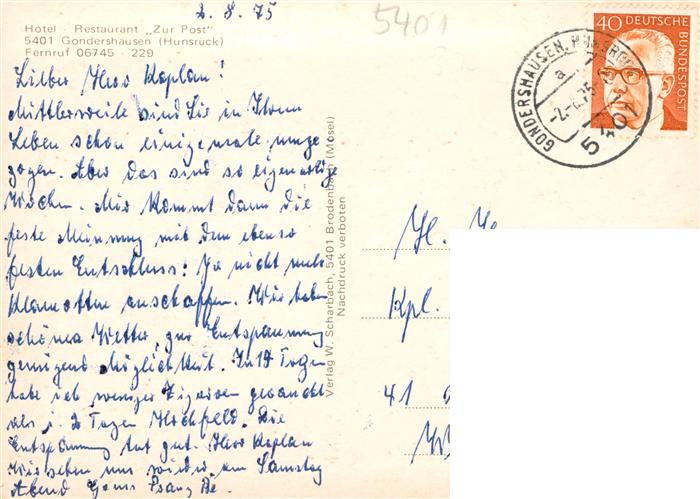 2.8.75
5401
Hotel · Restaurant „Zur Post"
5401 Gondershausen (Hunsrück)
Fernruf 06745 · 229
Lieber Herr Kaplan!
Mittlerweile sind Sie in Ihrem
Leben schon einigemale umge
zogen. Aber das sind so eigenartige
Wochen. Mir kommt dann die
feste Meinung mit dem ebenso
festen Entschluss: Ja nicht mehr
Klamotten anschaffen. Wir haben
schönes Wetter, zur Entspannung
genügend Möglichkeit. In 14 Tagen
habe ich weniger Zigarren geraucht
als i. 2 Tagen Hochfeld. Die
Entspannung tut gut. Herr Kaplan
Wir sehen uns wieder am Samstag
Abend
Verlag W. Scharbach, 5401 Brodenbach (Mosel)
Nachdruck verboten
GONDERSHAUSEN, HUNSRÜCK
a
-2.-8.75
5401
40 DEUTSCHE
BUNDESPOST
H. H.
Kpl.
41